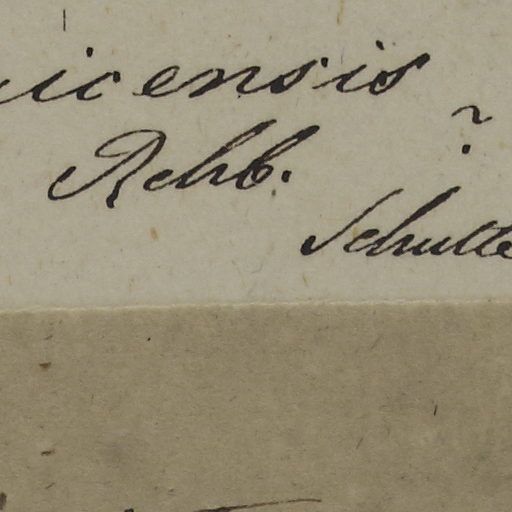 icensis
Rchb. ?
Schutte